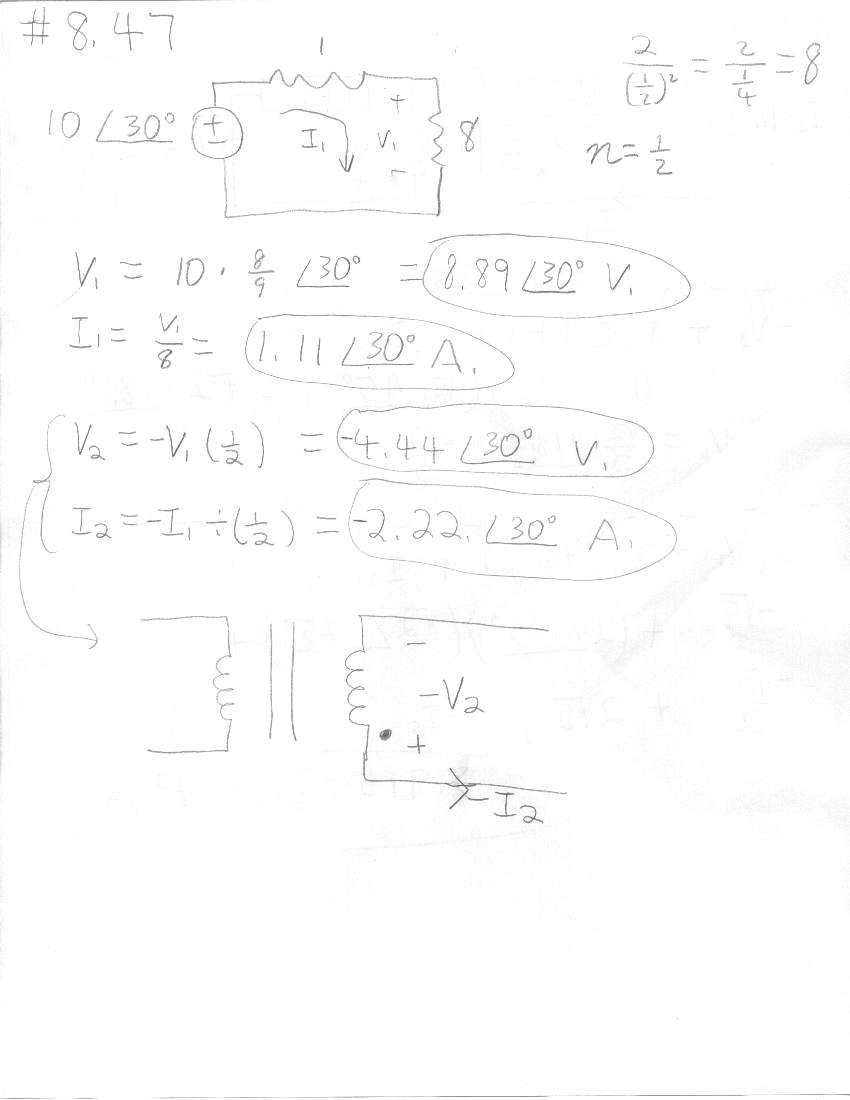 # 8.47
1
2/(1/2)² = 2/(1/4) = 8
10 ∠30° ± I₁ + V₁ - 8
n = 1/2
V₁ = 10 · 8/9 ∠30° = 8.89 ∠30° V.
I₁ = V₁/8 = 1.11 ∠30° A.
V₂ = -V₁ (1/2) = -4.44 ∠30° V.
I₂ = -I₁ ÷ (1/2) = -2.22. ∠30° A.
-
-V₂
+
-I₂